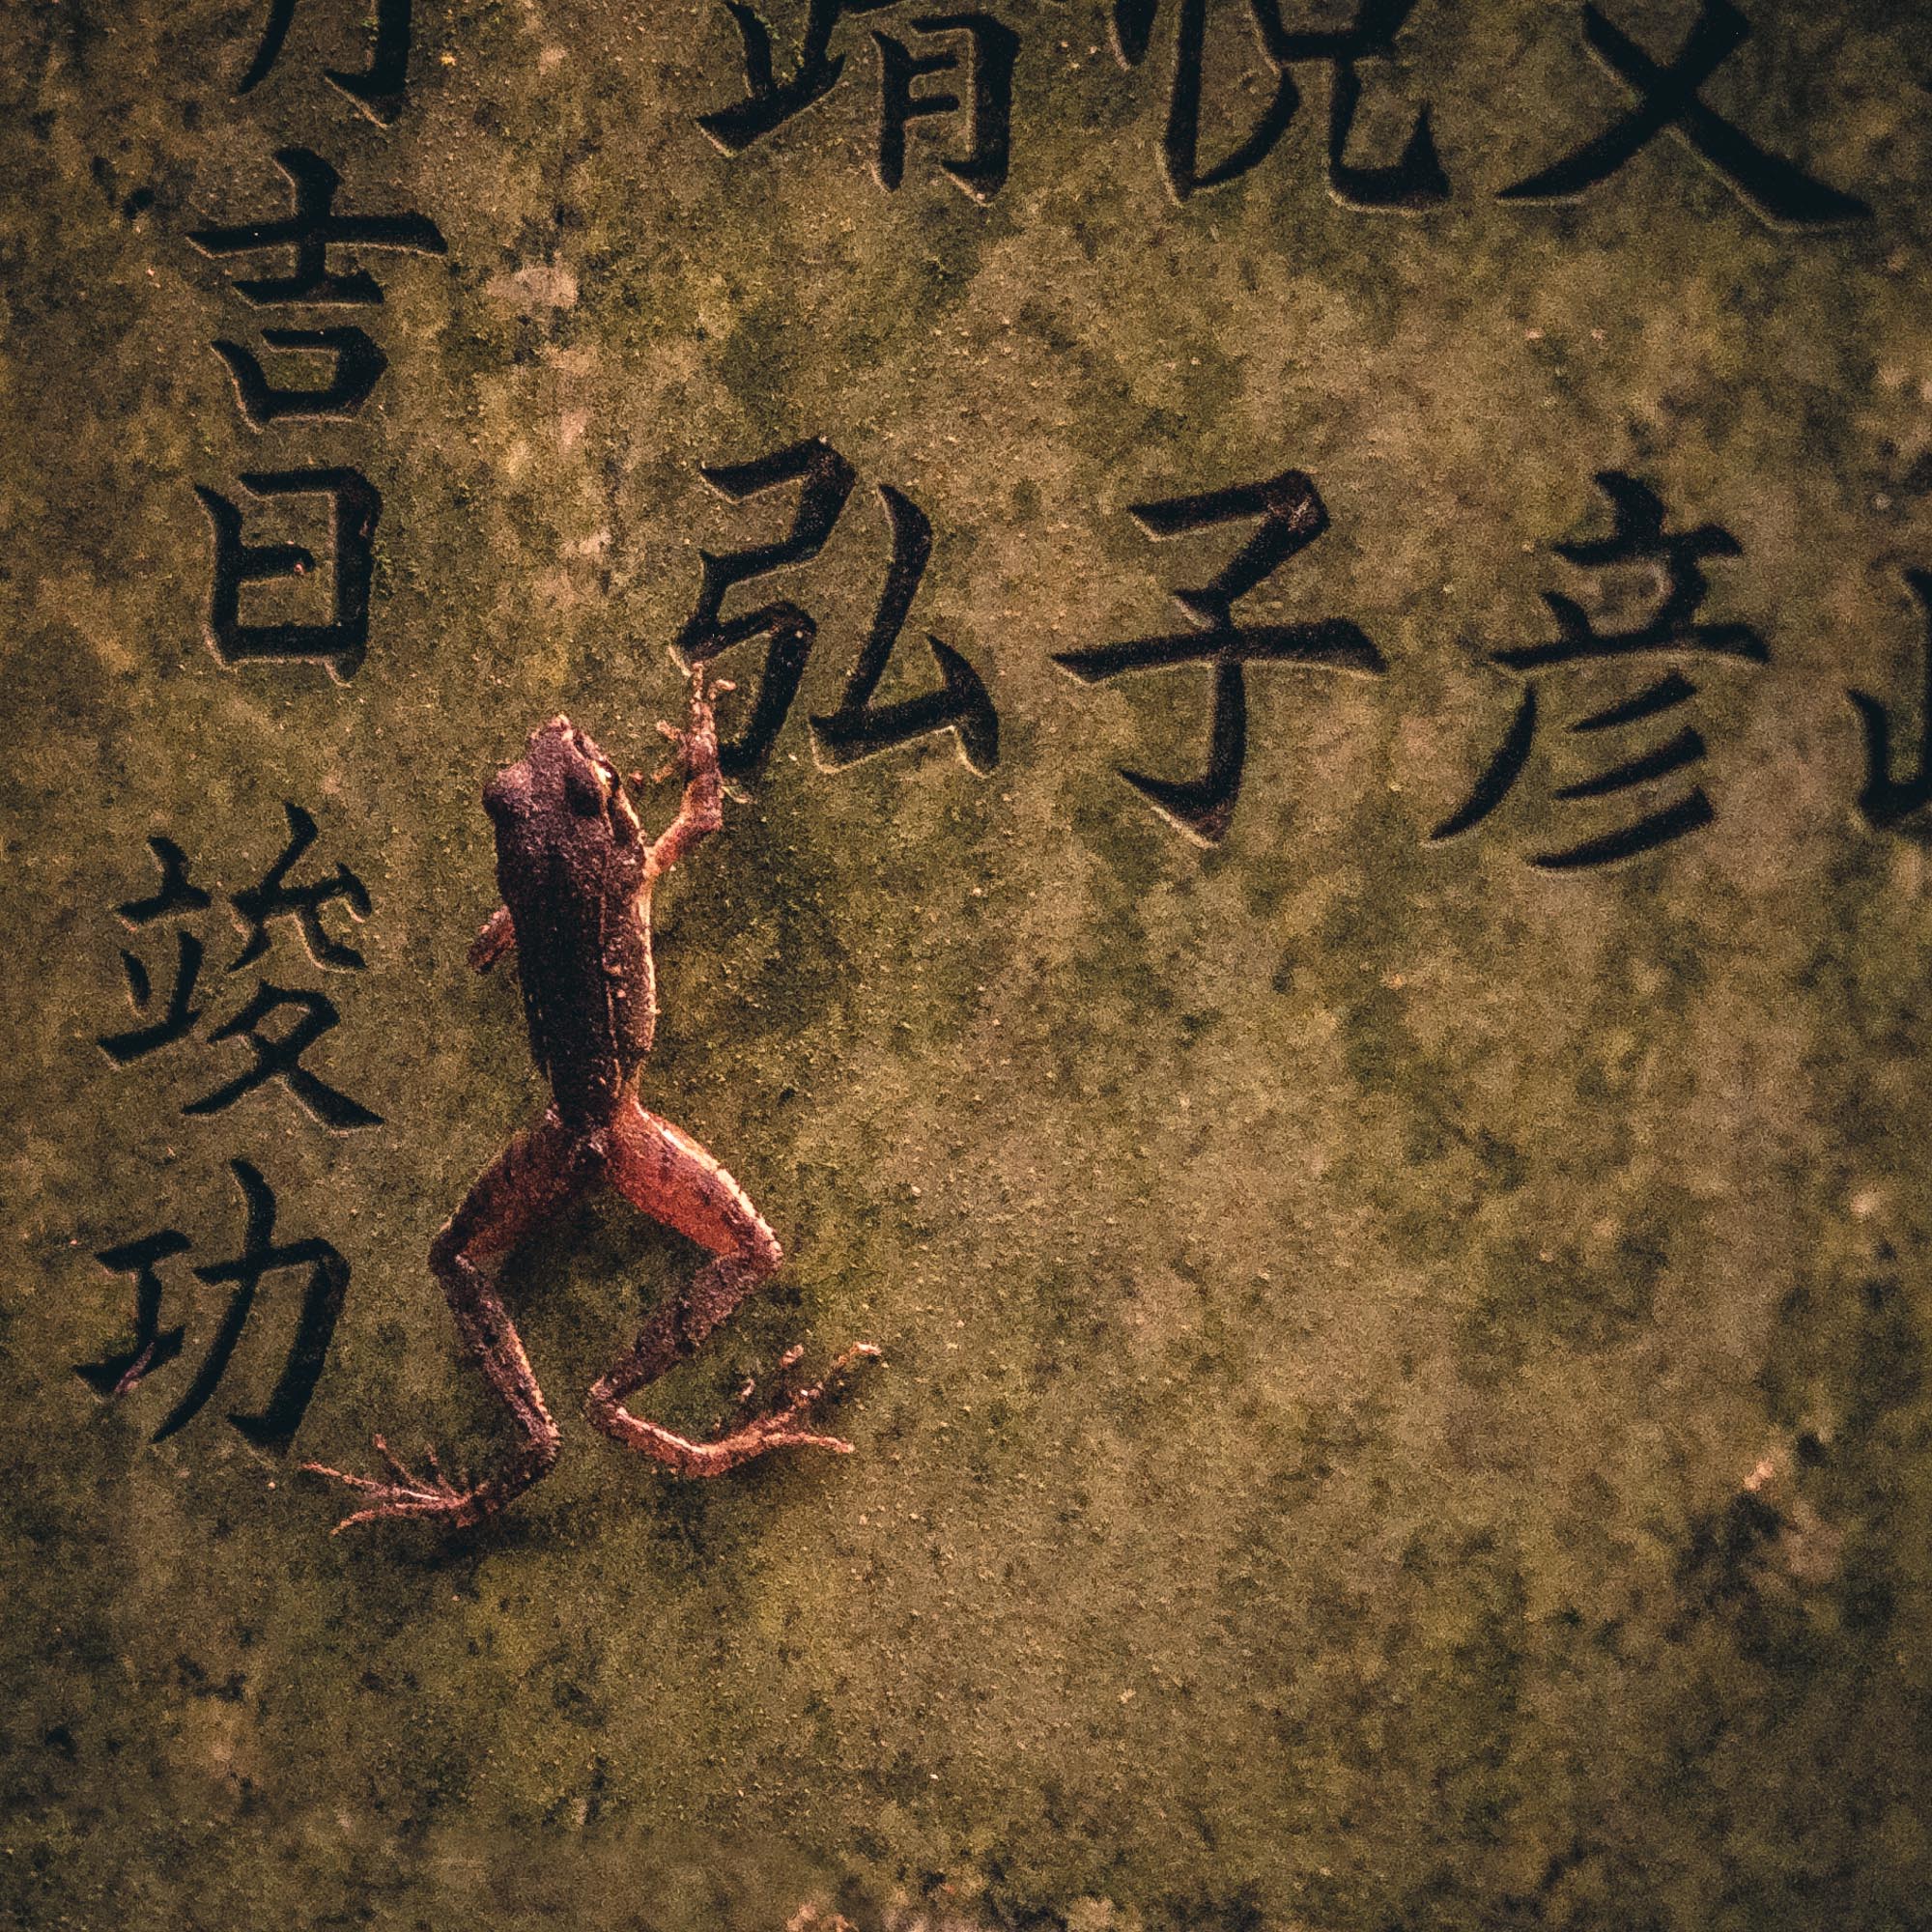 文彦
悦子
靖弘
月吉日竣功